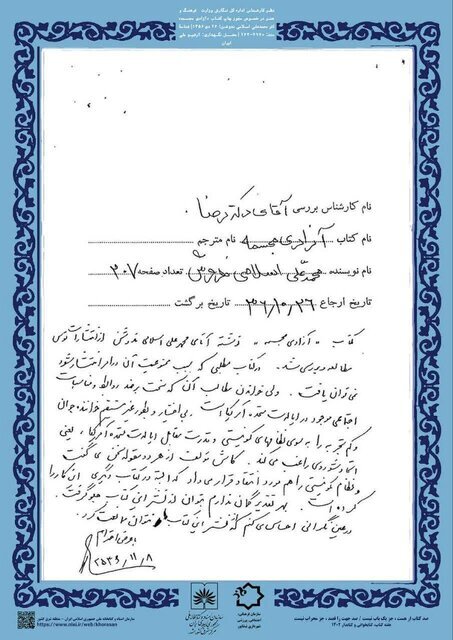 نظر کارشناس اداره کل نگارش وزارت فرهنگ و
هنر در خصوص مجوز چاپ کتاب «آزادی مجسمه»
اثر محمدعلی اسلامی ندوشن
ایران
نام کارشناس بررسی آقای دکتر رضا
نام کتاب آزادی مجسمه نام مترجم
نام نویسنده محمد علی اسلامی ندوشن تعداد صفحه ۳۰۷
تاریخ ارجاع ۳۶/۱۰/۲۶ تاریخ برگشت
کتاب « آزادی مجسمه » نوشته آقای محمد علی اسلامی ندوشن از انتشارات توس
مطالعه و بررسی شد. در کتاب مطلبی که سبب ممنوعیت آن در امر انتشار شود
نمی توان یافت. ولی خواندن مطالب آن که سخت بر ضد روابط و مناسبات
اجتماعی موجود در ایالات متحده آمریکا است بی اختیار و بطور غیر مستقیم خواننده جوان
و کم تجربه را به سوی نظامهای کمونیستی و قدرت مقابل ایالات متحده آمریکا، یعنی
اتحاد شوروی راغب می کند. کاش مولف از هر دو مقوله سخن می گفت
و نظام کمونیستی را هم مورد انتقاد قرار می داد که البته در کتاب دیگری این کار را
کرده است. بهر تقدیر گمان ندارم بتوان از نشر این کتاب جلوگرفت.
در عین نگرانی احساس می کنم که از نشر این کتاب نتوان ممانعت کرد.
۲۵۳۶/۱۱/۸
سازمان اسناد و کتابخانه ملی جمهوری اسلامی ایران - منطقه شرق کشور
https://www.nlai.ir/web/khorasan
سازمان فرهنگی،
اجتماعی، ورزشی
شهرداری نیشابور
صد کتاب از هست، جز یک باب نیست / صد جهت را قصد، جز محراب نیست
هفته کتاب، کتابخوانی و کتابدار ۱۴۰۲